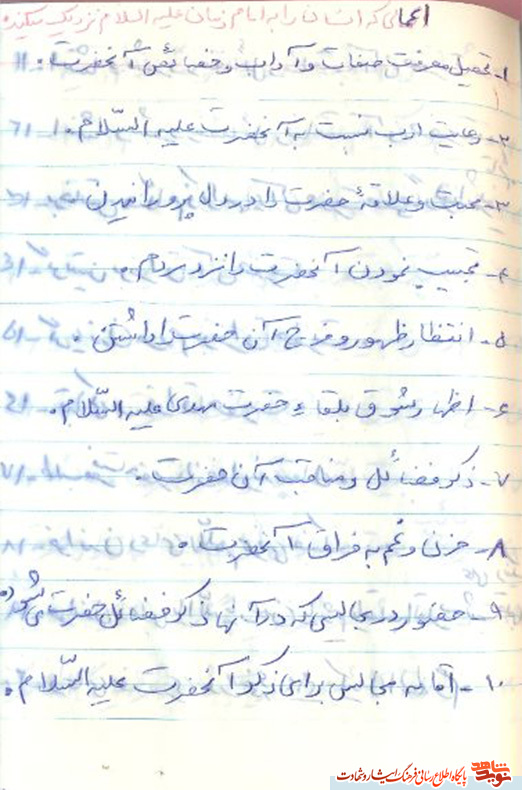 اعمالی که انسان را به امام زمان علیه السلام نزدیک میکند
۱- تحصیل معرفت صفات و آداب و خصائص آنحضرت.
۲- رعایت ادب نسبت به آنحضرت علیه السّلام.
۳- محبت و علاقهٔ حضرت را در دل پروراندن
۴- محبیب نمودن آنحضرت را نزد مردم.
۵- انتظار ظهور و فرج آن حضرت را داشتن.
۶- اظهار شوق بلقاء حضرت مهدی علیه السّلام.
۷- ذکر فضائل و مناقب آن حضرت.
۸- حزن و غم به فراق آنحضرت.
۹- حضور در مجالسی که در آنها ذکر فضائل حضرت می شود
۱۰- اقامه مجالس برای ذکر آنحضرت علیه السّلام.
نوید شاهد پایگاه اطلاع رسانی فرهنگ ایثار و شهادت